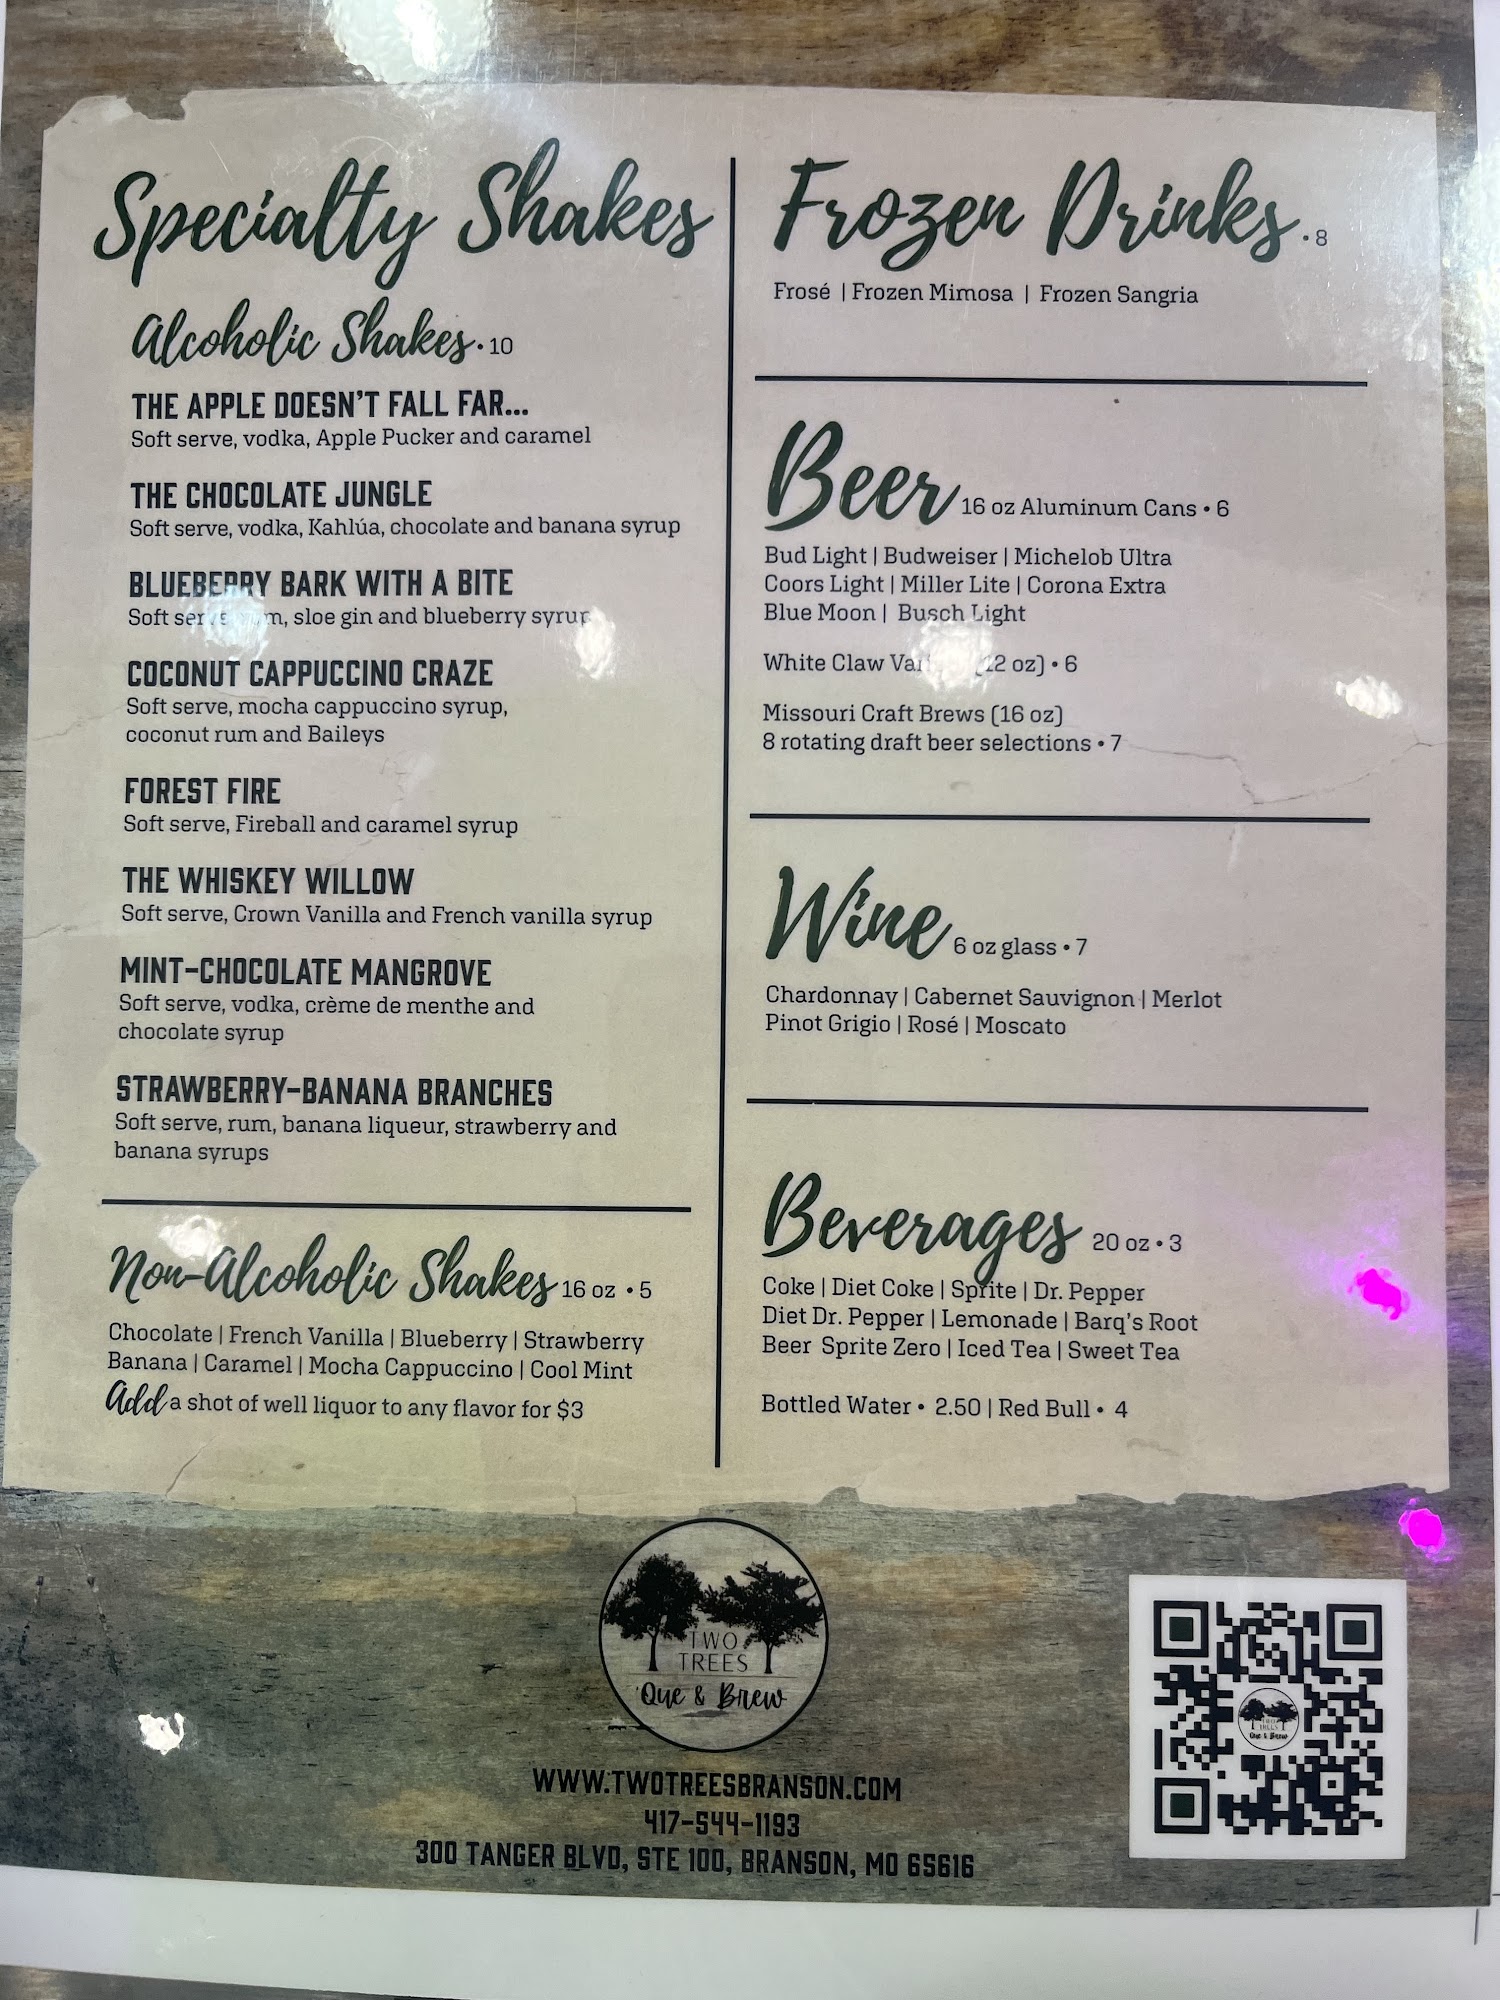 Specialty Shakes
Alcoholic Shakes • 10
THE APPLE DOESN'T FALL FAR...
Soft serve, vodka, Apple Pucker and caramel
THE CHOCOLATE JUNGLE
Soft serve, vodka, Kahlúa, chocolate and banana syrup
BLUEBERRY BARK WITH A BITE
Soft serve, rum, sloe gin and blueberry syrup
COCONUT CAPPUCCINO CRAZE
Soft serve, mocha cappuccino syrup,
coconut rum and Baileys
FOREST FIRE
Soft serve, Fireball and caramel syrup
THE WHISKEY WILLOW
Soft serve, Crown Vanilla and French vanilla syrup
MINT-CHOCOLATE MANGROVE
Soft serve, vodka, crème de menthe and
chocolate syrup
STRAWBERRY-BANANA BRANCHES
Soft serve, rum, banana liqueur, strawberry and
banana syrups
Non-Alcoholic Shakes 16 oz • 5
Chocolate | French Vanilla | Blueberry | Strawberry
Banana | Caramel | Mocha Cappuccino | Cool Mint
Add a shot of well liquor to any flavor for $3
Frozen Drinks • 8
Frosé | Frozen Mimosa | Frozen Sangria
Beer 16 oz Aluminum Cans • 6
Bud Light | Budweiser | Michelob Ultra
Coors Light | Miller Lite | Corona Extra
Blue Moon | Busch Light
White Claw (12 oz) • 6
Missouri Craft Brews (16 oz)
8 rotating draft beer selections • 7
Wine 6 oz glass • 7
Chardonnay | Cabernet Sauvignon | Merlot
Pinot Grigio | Rosé | Moscato
Beverages 20 oz • 3
Coke | Diet Coke | Sprite | Dr. Pepper
Diet Dr. Pepper | Lemonade | Barq's Root
Beer Sprite Zero | Iced Tea | Sweet Tea
Bottled Water • 2.50 | Red Bull • 4
TWO
TREES
Que & Brew
TWO
TREES
Que & Brew
WWW.TWOTREESBRANSON.COM
417-544-1193
300 TANGER BLVD, STE 100, BRANSON, MO 65616